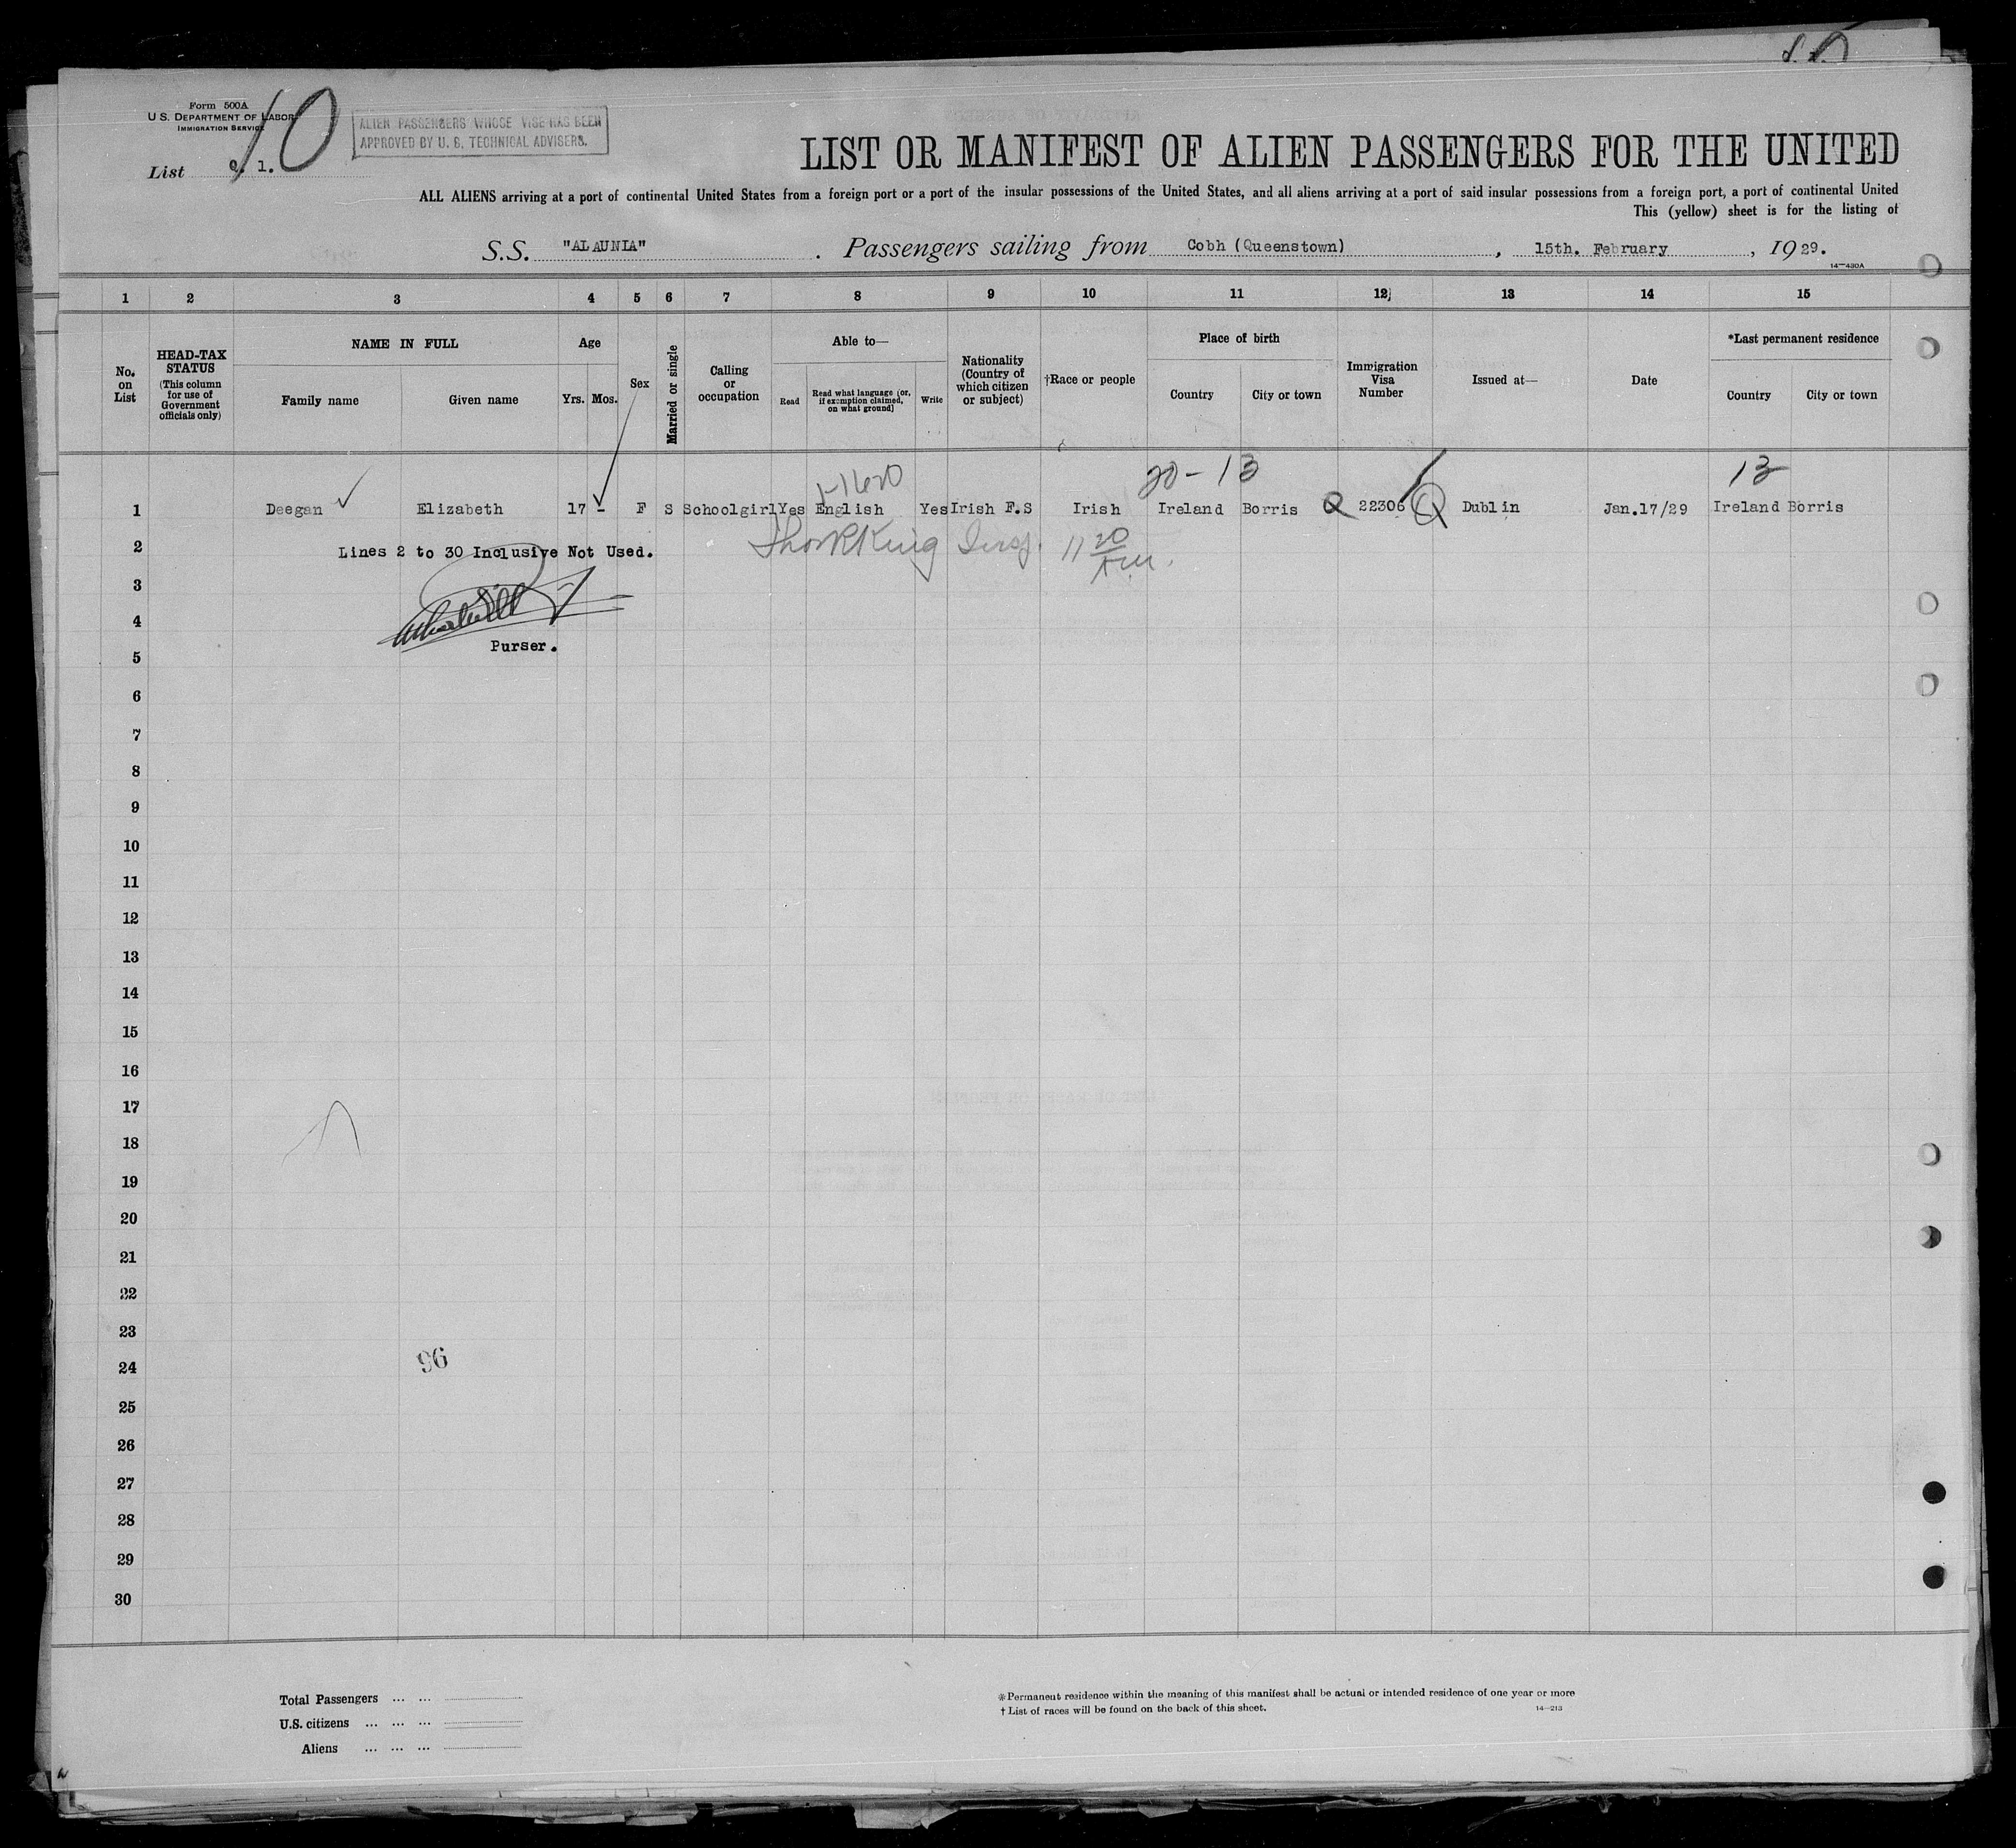 Form 500A
U.S. DEPARTMENT OF LABOR
IMMIGRATION SERVICE
10
ALIEN PASSENGERS WHOSE VISE HAS BEEN
APPROVED BY U. S. TECHNICAL ADVISERS.
List 1.
LIST OR MANIFEST OF ALIEN PASSENGERS FOR THE UNITED
ALL ALIENS arriving at a port of continental United States from a foreign port or a port of the insular possessions of the United States, and all aliens arriving at a port of said insular possessions from a foreign port, a port of continental United
This (yellow) sheet is for the listing of
S.S. "ALAUNIA" . Passengers sailing from Cobh (Queenstown) , 15th. February , 1929.
14—430A
1 2 3 4 5 6 7 8 9 10 11 12 13 14 15
No. on List
HEAD-TAX STATUS (This column for use of Government officials only)
NAME IN FULL
Family name Given name
Age
Yrs. Mos.
Sex
Married or single
Calling or occupation
Able to—
Read Read what language (or, if exemption claimed, on what ground) Write
Nationality (Country of which citizen or subject)
†Race or people
Place of birth
Country City or town
Immigration Visa Number
Issued at—
Date
*Last permanent residence
Country City or town
20-13 13
1 Deegan Elizabeth 17 - F S Schoolgirl Yes English Yes Irish F.S Irish Ireland Borris Q 22306 Q Dublin Jan.17/29 Ireland Borris
2 Lines 2 to 30 Inclusive Not Used. Insp. 11 20 AM.
3
4
Purser.
5
6
7
8
9
10
11
12
13
14
15
16
17
18
19
20
21
22
23
24 96
25
26
27
28
29
30
Total Passengers ... ...
U.S. citizens ... ... ...
Aliens ... ... ...
*Permanent residence within the meaning of this manifest shall be actual or intended residence of one year or more
† List of races will be found on the back of this sheet.
14—213